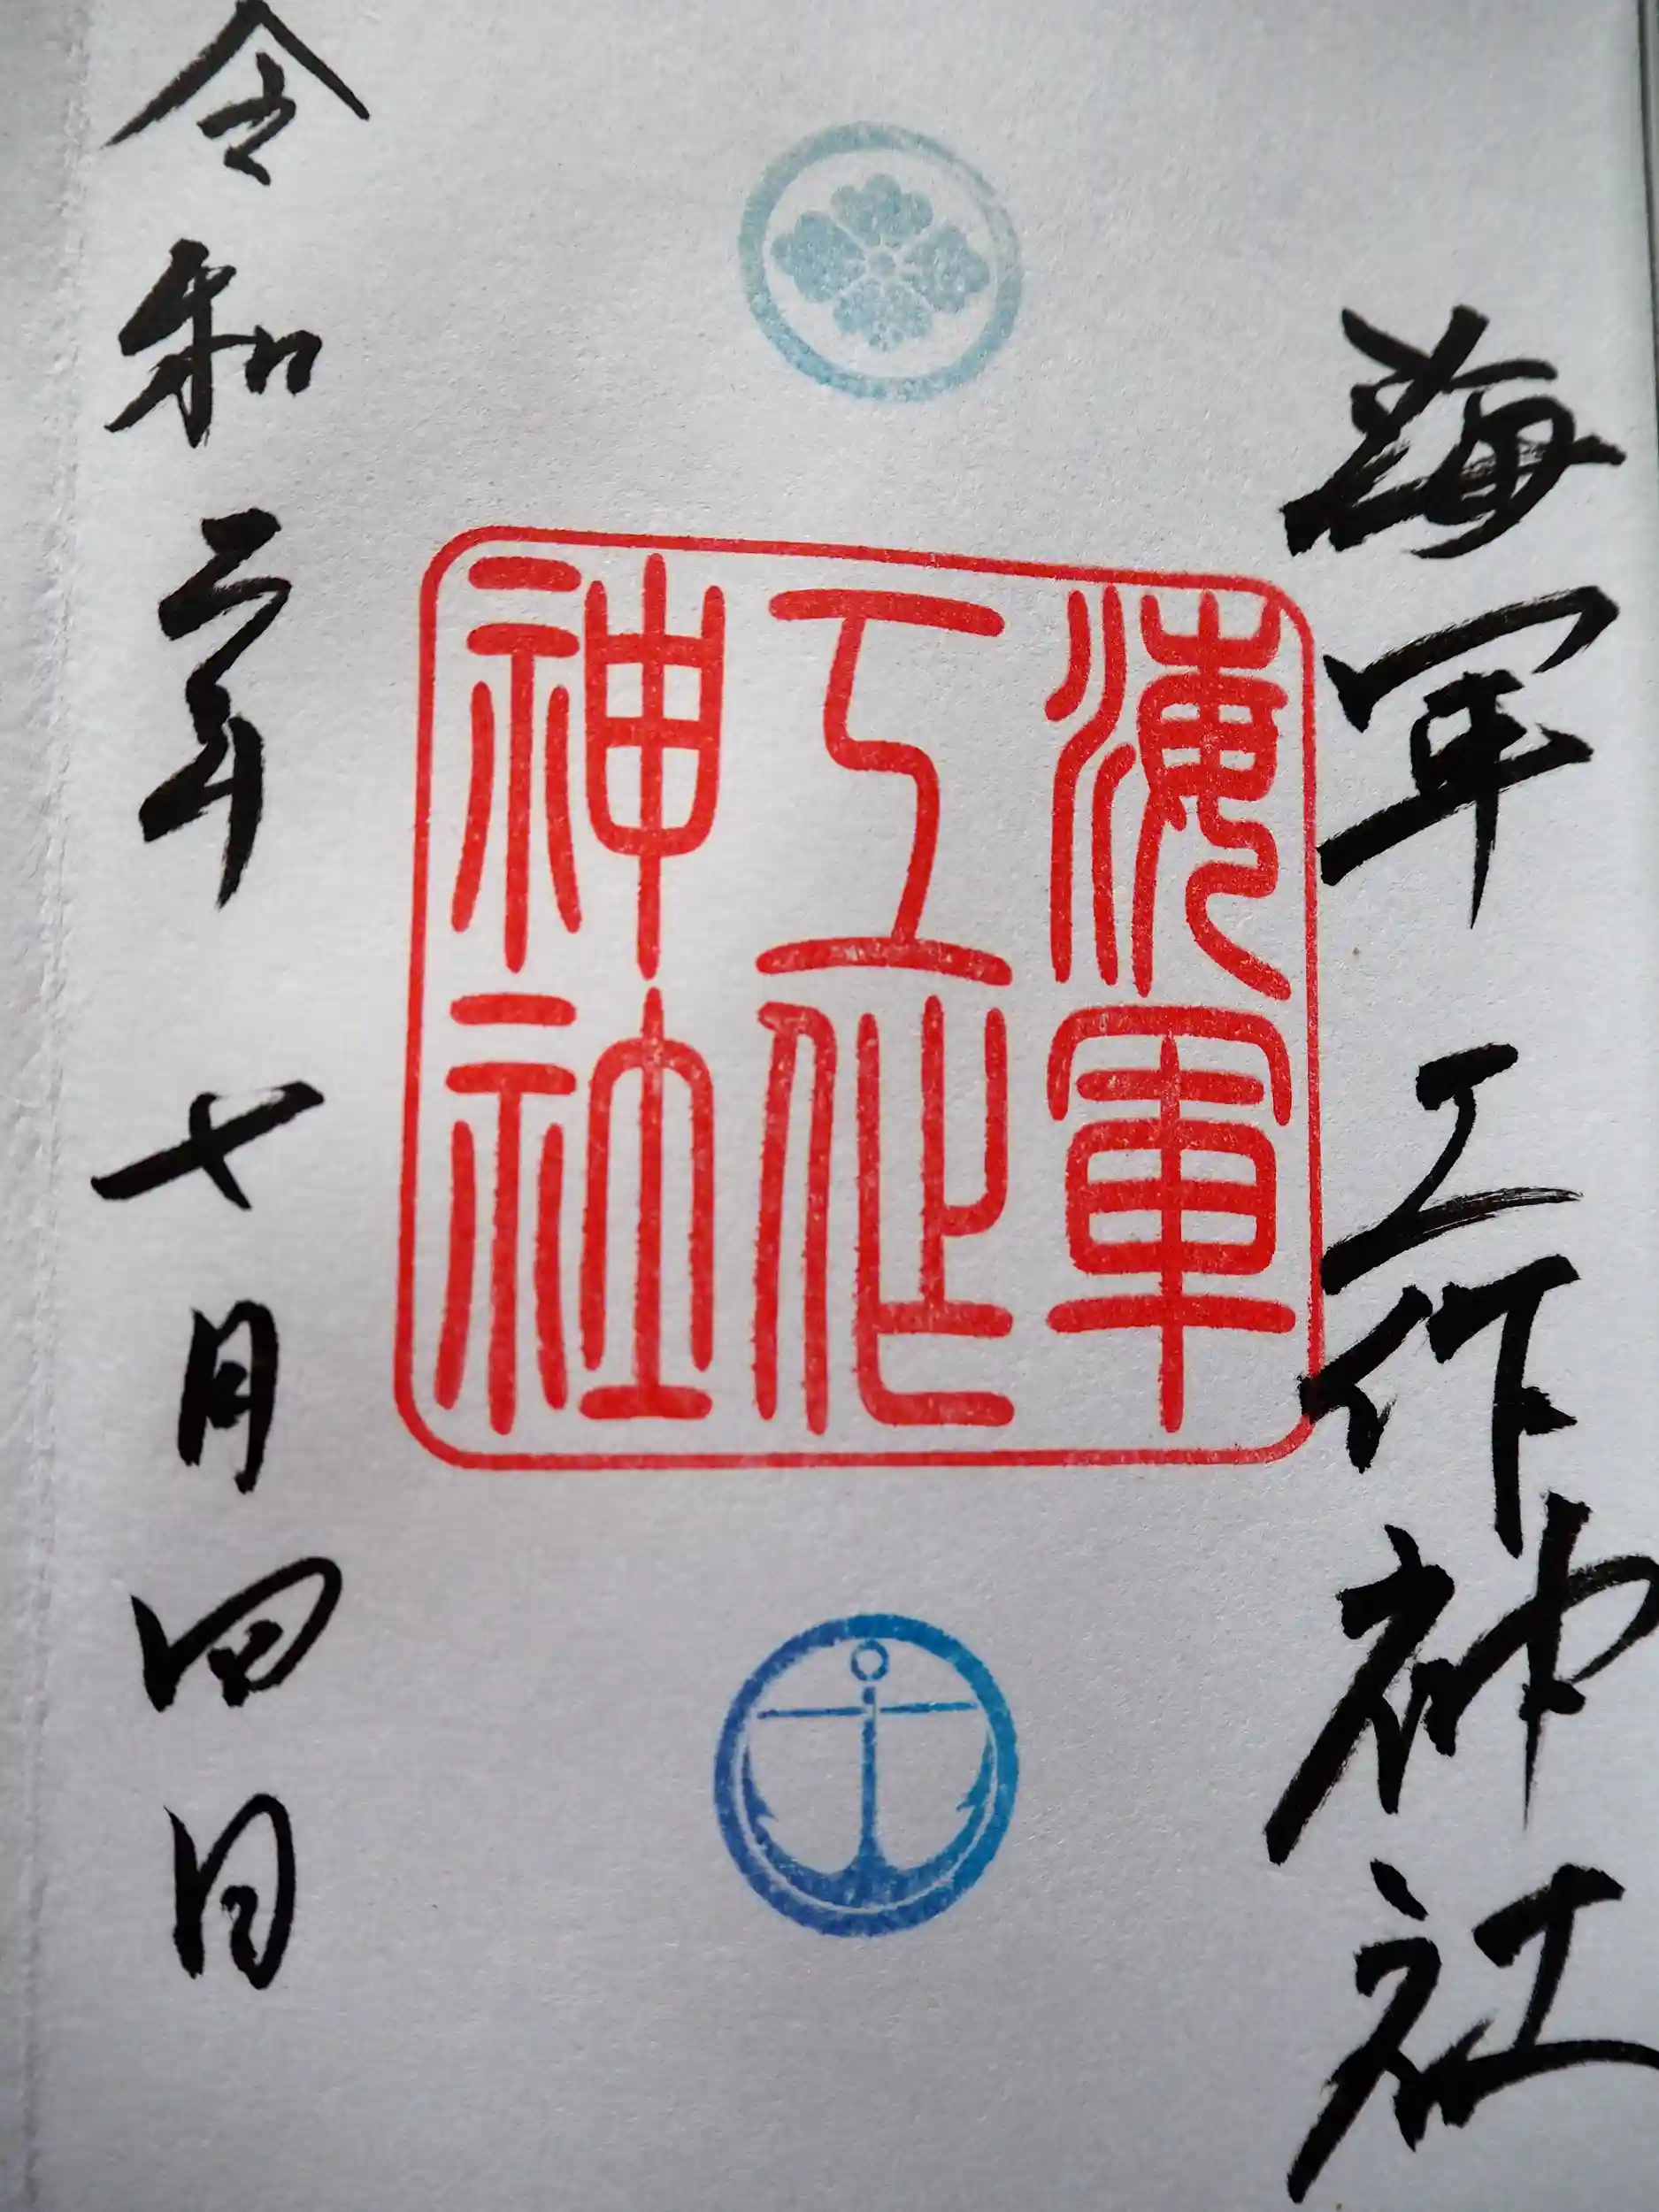 海軍工作神社
海軍
工作
神社
令和三年七月四日